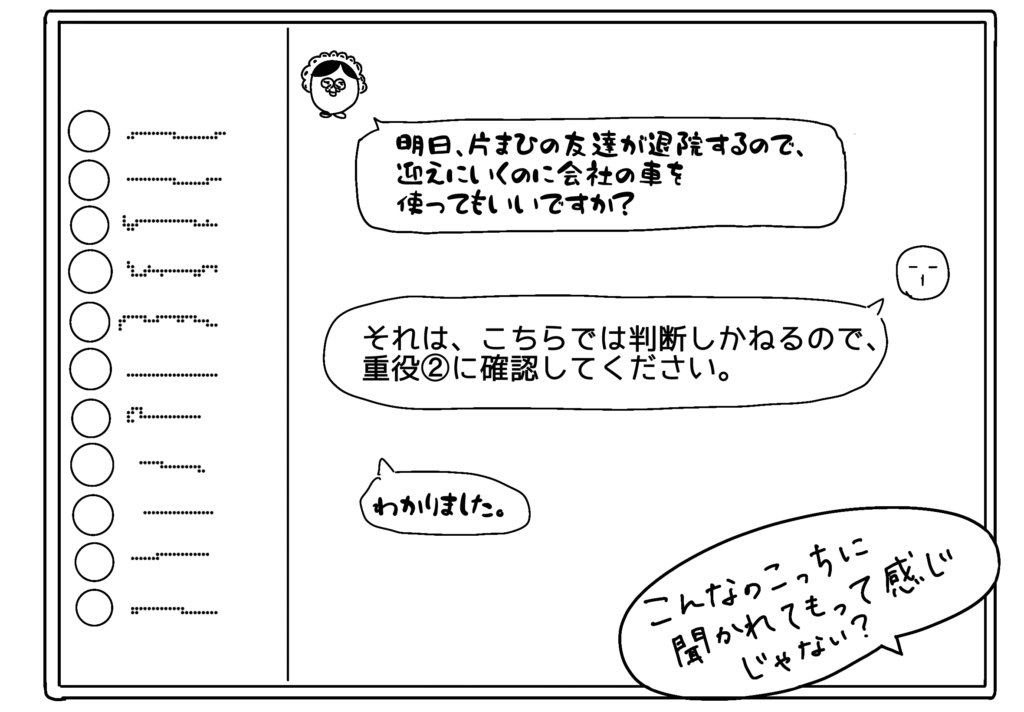 明日、片まひの友達が退院するので、
迎えにいくのに会社の車を
使ってもいいですか？
それは、こちらでは判断しかねるので、
重役②に確認してください。
わかりました。
こんなのこっちに
聞かれてもって感じ
じゃない？